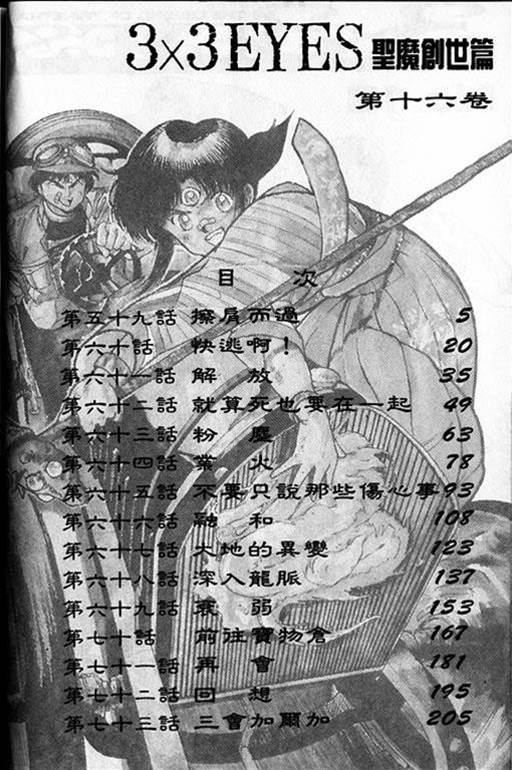 3×3 EYES 聖魔創世篇
第十六卷
目 次
第五十九話 擦肩而過 5
第六十話 快逃啊！ 20
第六十一話 解 放 35
第六十二話 就算死也要在一起 49
第六十三話 粉 塵 63
第六十四話 業 火 78
第六十五話 不要只說那些傷心事 93
第六十六話 融 和 108
第六十七話 大地的異變 123
第六十八話 深入龍脈 137
第六十九話 衰 弱 153
第七十話 前往寶物倉 167
第七十一話 再 會 181
第七十二話 回 想 195
第七十三話 三會加爾加 205